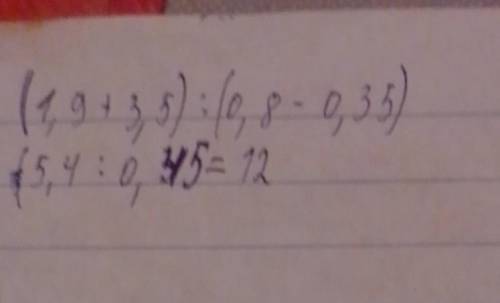 (1,9 + 3,5) : (0,8 - 0,35)
5,4 : 0,45 = 12